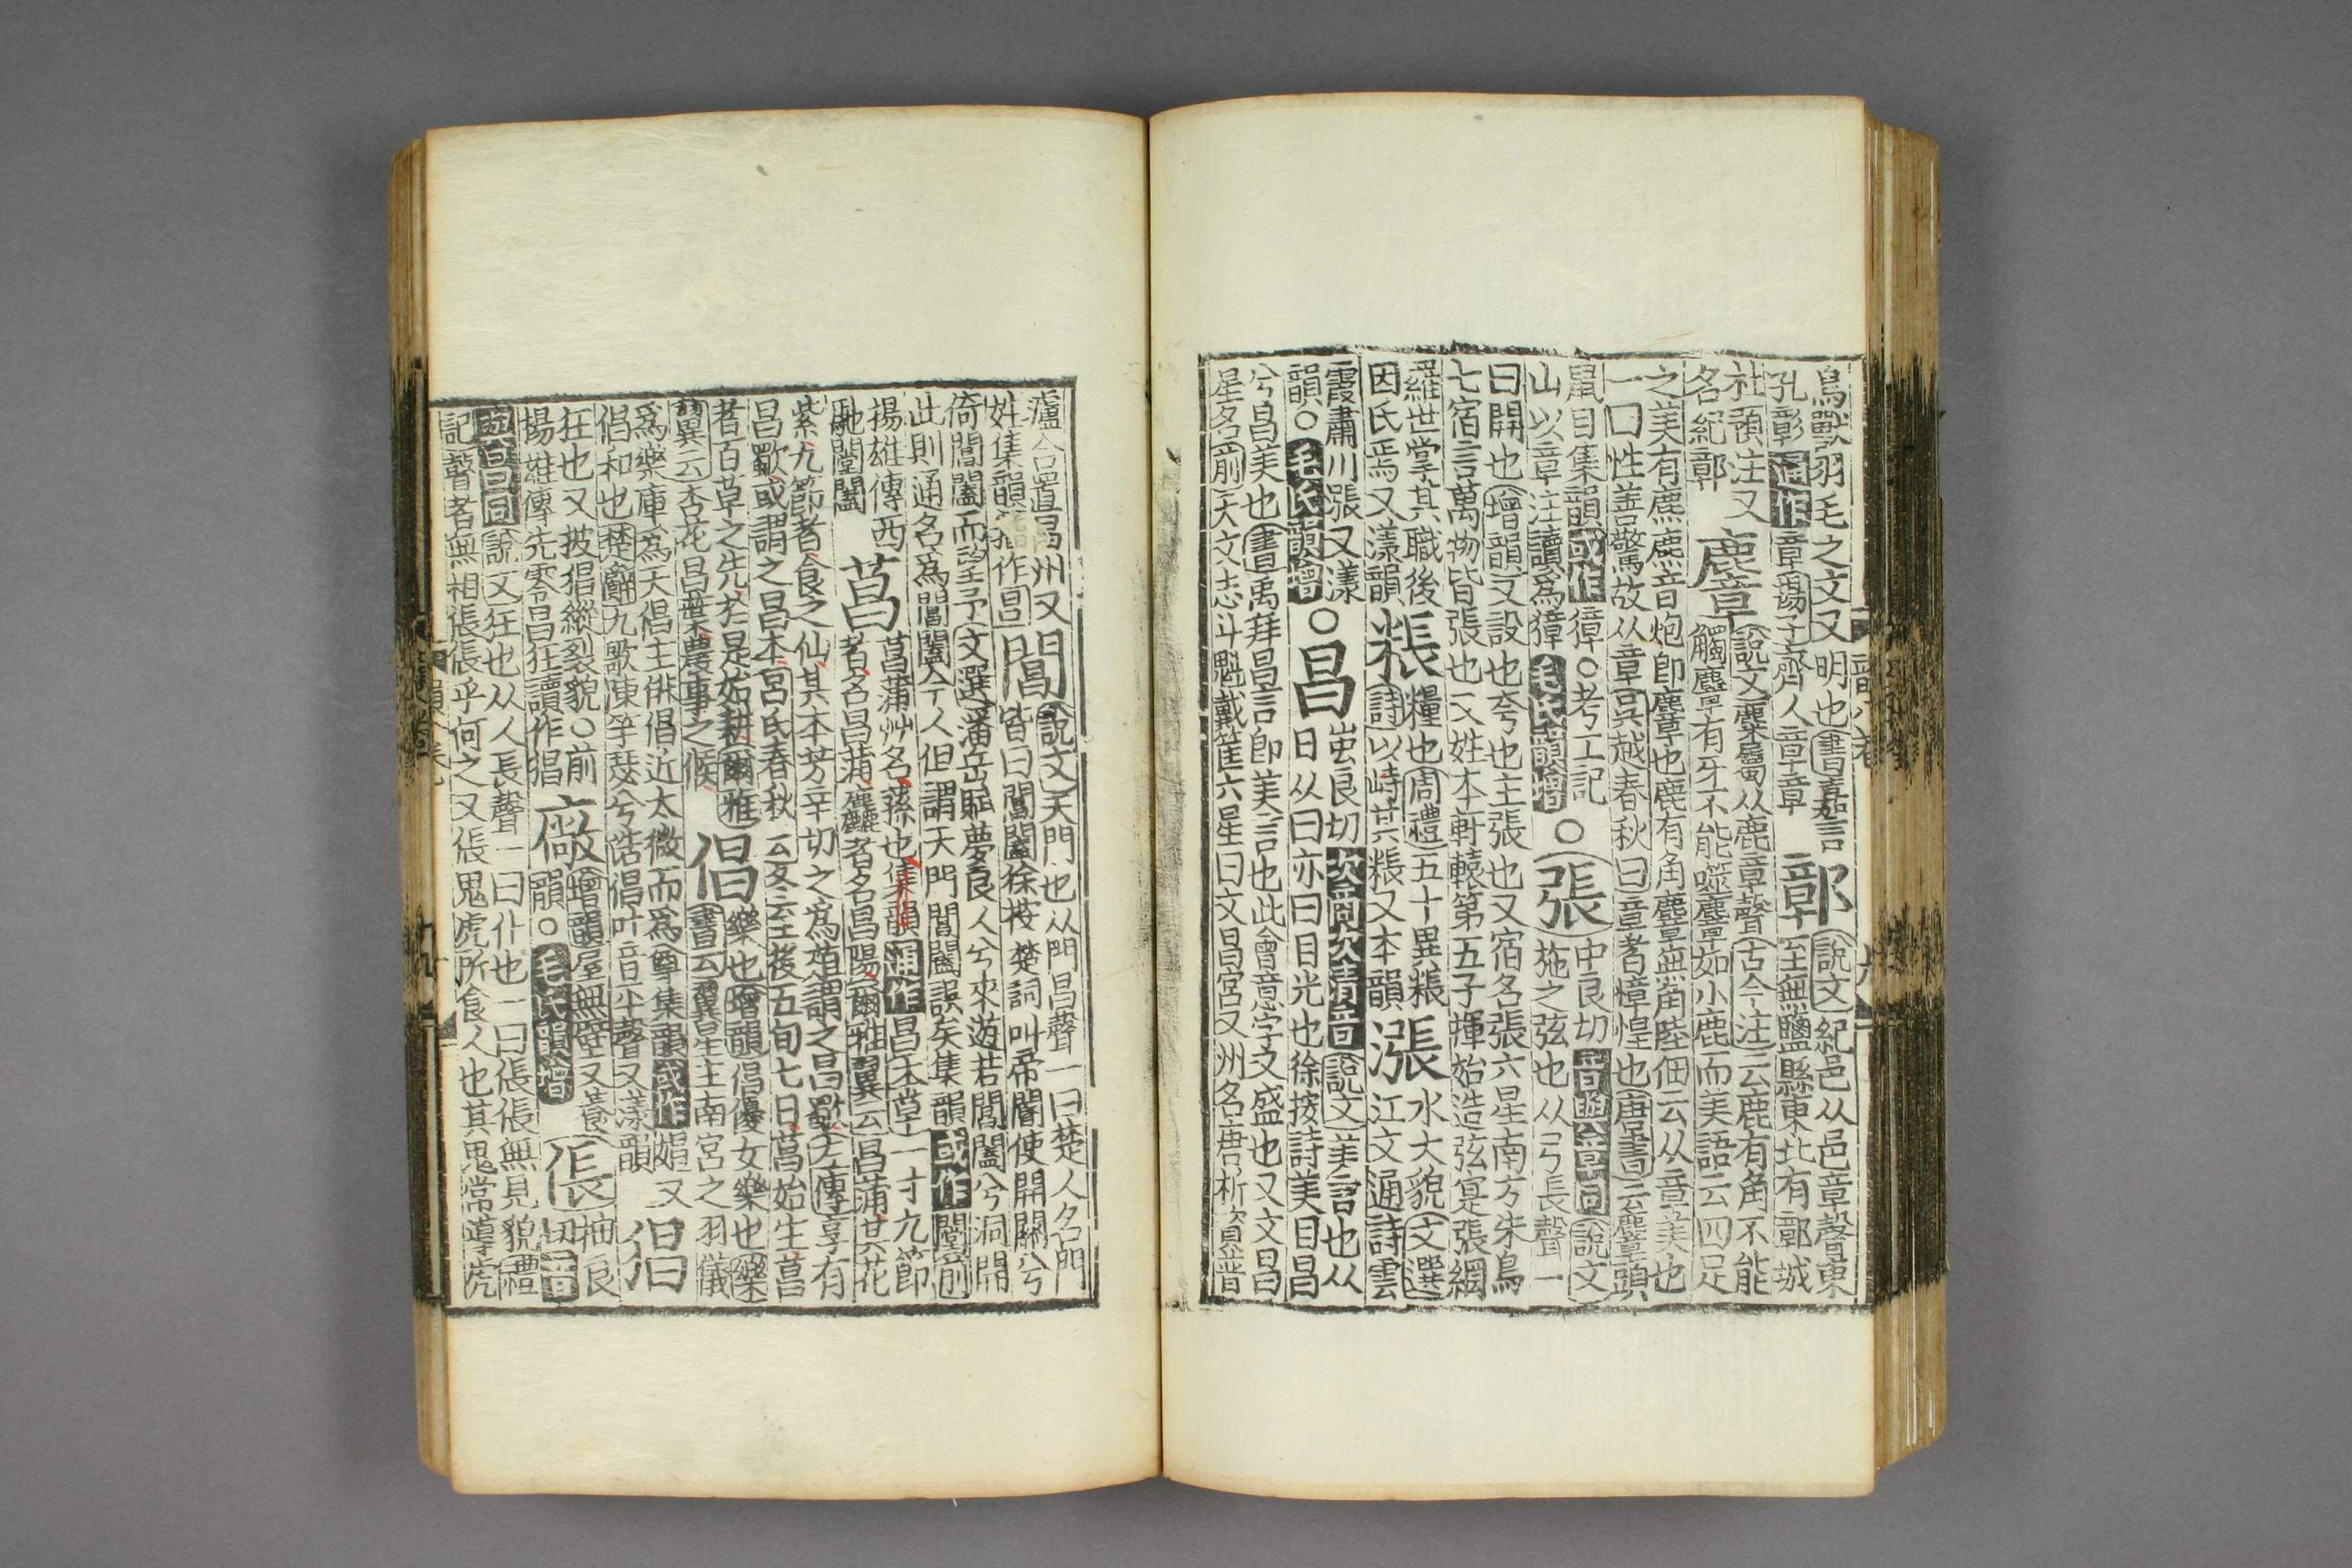 鳥獸羽毛之文又明也書嘉言
孔彰通作章揚子齊人章章
鄣
說文紀邑从邑章聲東
至無鹽縣東北有鄣城
杜預注又
名紀鄣
麞
說文麋屬从鹿章聲古今注云鹿有角不能
觸麞有牙不能噬麞如小鹿而美語云四足
之美有麃麃音炮即麞也鹿有角麞無角陸佃云从章美也
一曰性善驚故从章吳越春秋曰章者慞惶也唐書云麞頭
鼠目集韻或作獐○考工記
山以章注讀爲獐毛氏韻增
○張
中良切音與章同說文
施之弦也从弓長聲一
曰開也增韻又設也夸也主張也又宿名張六星南方朱鳥
七宿言萬物皆張也又姓本軒轅第五子揮始造弦寔張網
羅世掌其職後
因氏焉又漾韻
粻
糧也周禮五十異粻
詩以峙其粻又本韻
漲
水大貌文選
江文通詩雲
霞肅川漲又漾
韻○毛氏韻增
○昌
蚩良切次商次清音說文美言也从
日从曰亦曰日光也徐按詩美目昌
兮昌美也書禹拜昌言即美言也此會意字又盛也又文昌
星名前天文志斗魁戴筐六星曰文昌宮又州名唐析資普
瀘合置昌州又
姓集韻籀作昌
閶
說文天門也从門昌聲一曰楚人名門
皆曰閶闔徐按楚詞叫帝閽使開關兮
倚閶闔而望予文選潘岳賦夢良人兮來遊若閶闔兮洞開
此則通名爲閶闔今人但謂天門閶闔誤矣集韻或作闛前
揚雄傳西
馳闛闔
菖
菖蒲艸名蓀也集韻通作昌本草一寸九節
者名昌蒲麤者名昌陽爾雅翼云昌蒲其花
紫九節者食之仙其本芳辛切之爲葅謂之昌歜左傳享有
昌歜或謂之昌本呂氏春秋云冬至後五旬七日菖始生菖
者百草之先於是始耕爾雅
翼云杏花昌葉農事之候
倡
樂也增韻倡優女樂也樂
書云翼星主南宮之羽儀
爲樂庫爲天倡主俳倡近太微而爲尊集韻或作娼又
倡和也楚辭九歌陳竽瑟兮浩倡叶音平聲又漾韻
猖
狂也又披猖縱裂貌○前
揚雄傳先零昌狂讀作猖
廠
增韻屋無壁又養
韻○毛氏韻增
倀
抽良
切音
與昌同說文狂也从人長聲一曰仆也一曰倀倀無見貌禮
記瞽者無相倀倀乎何之又倀鬼虎所食人也其鬼常導虎